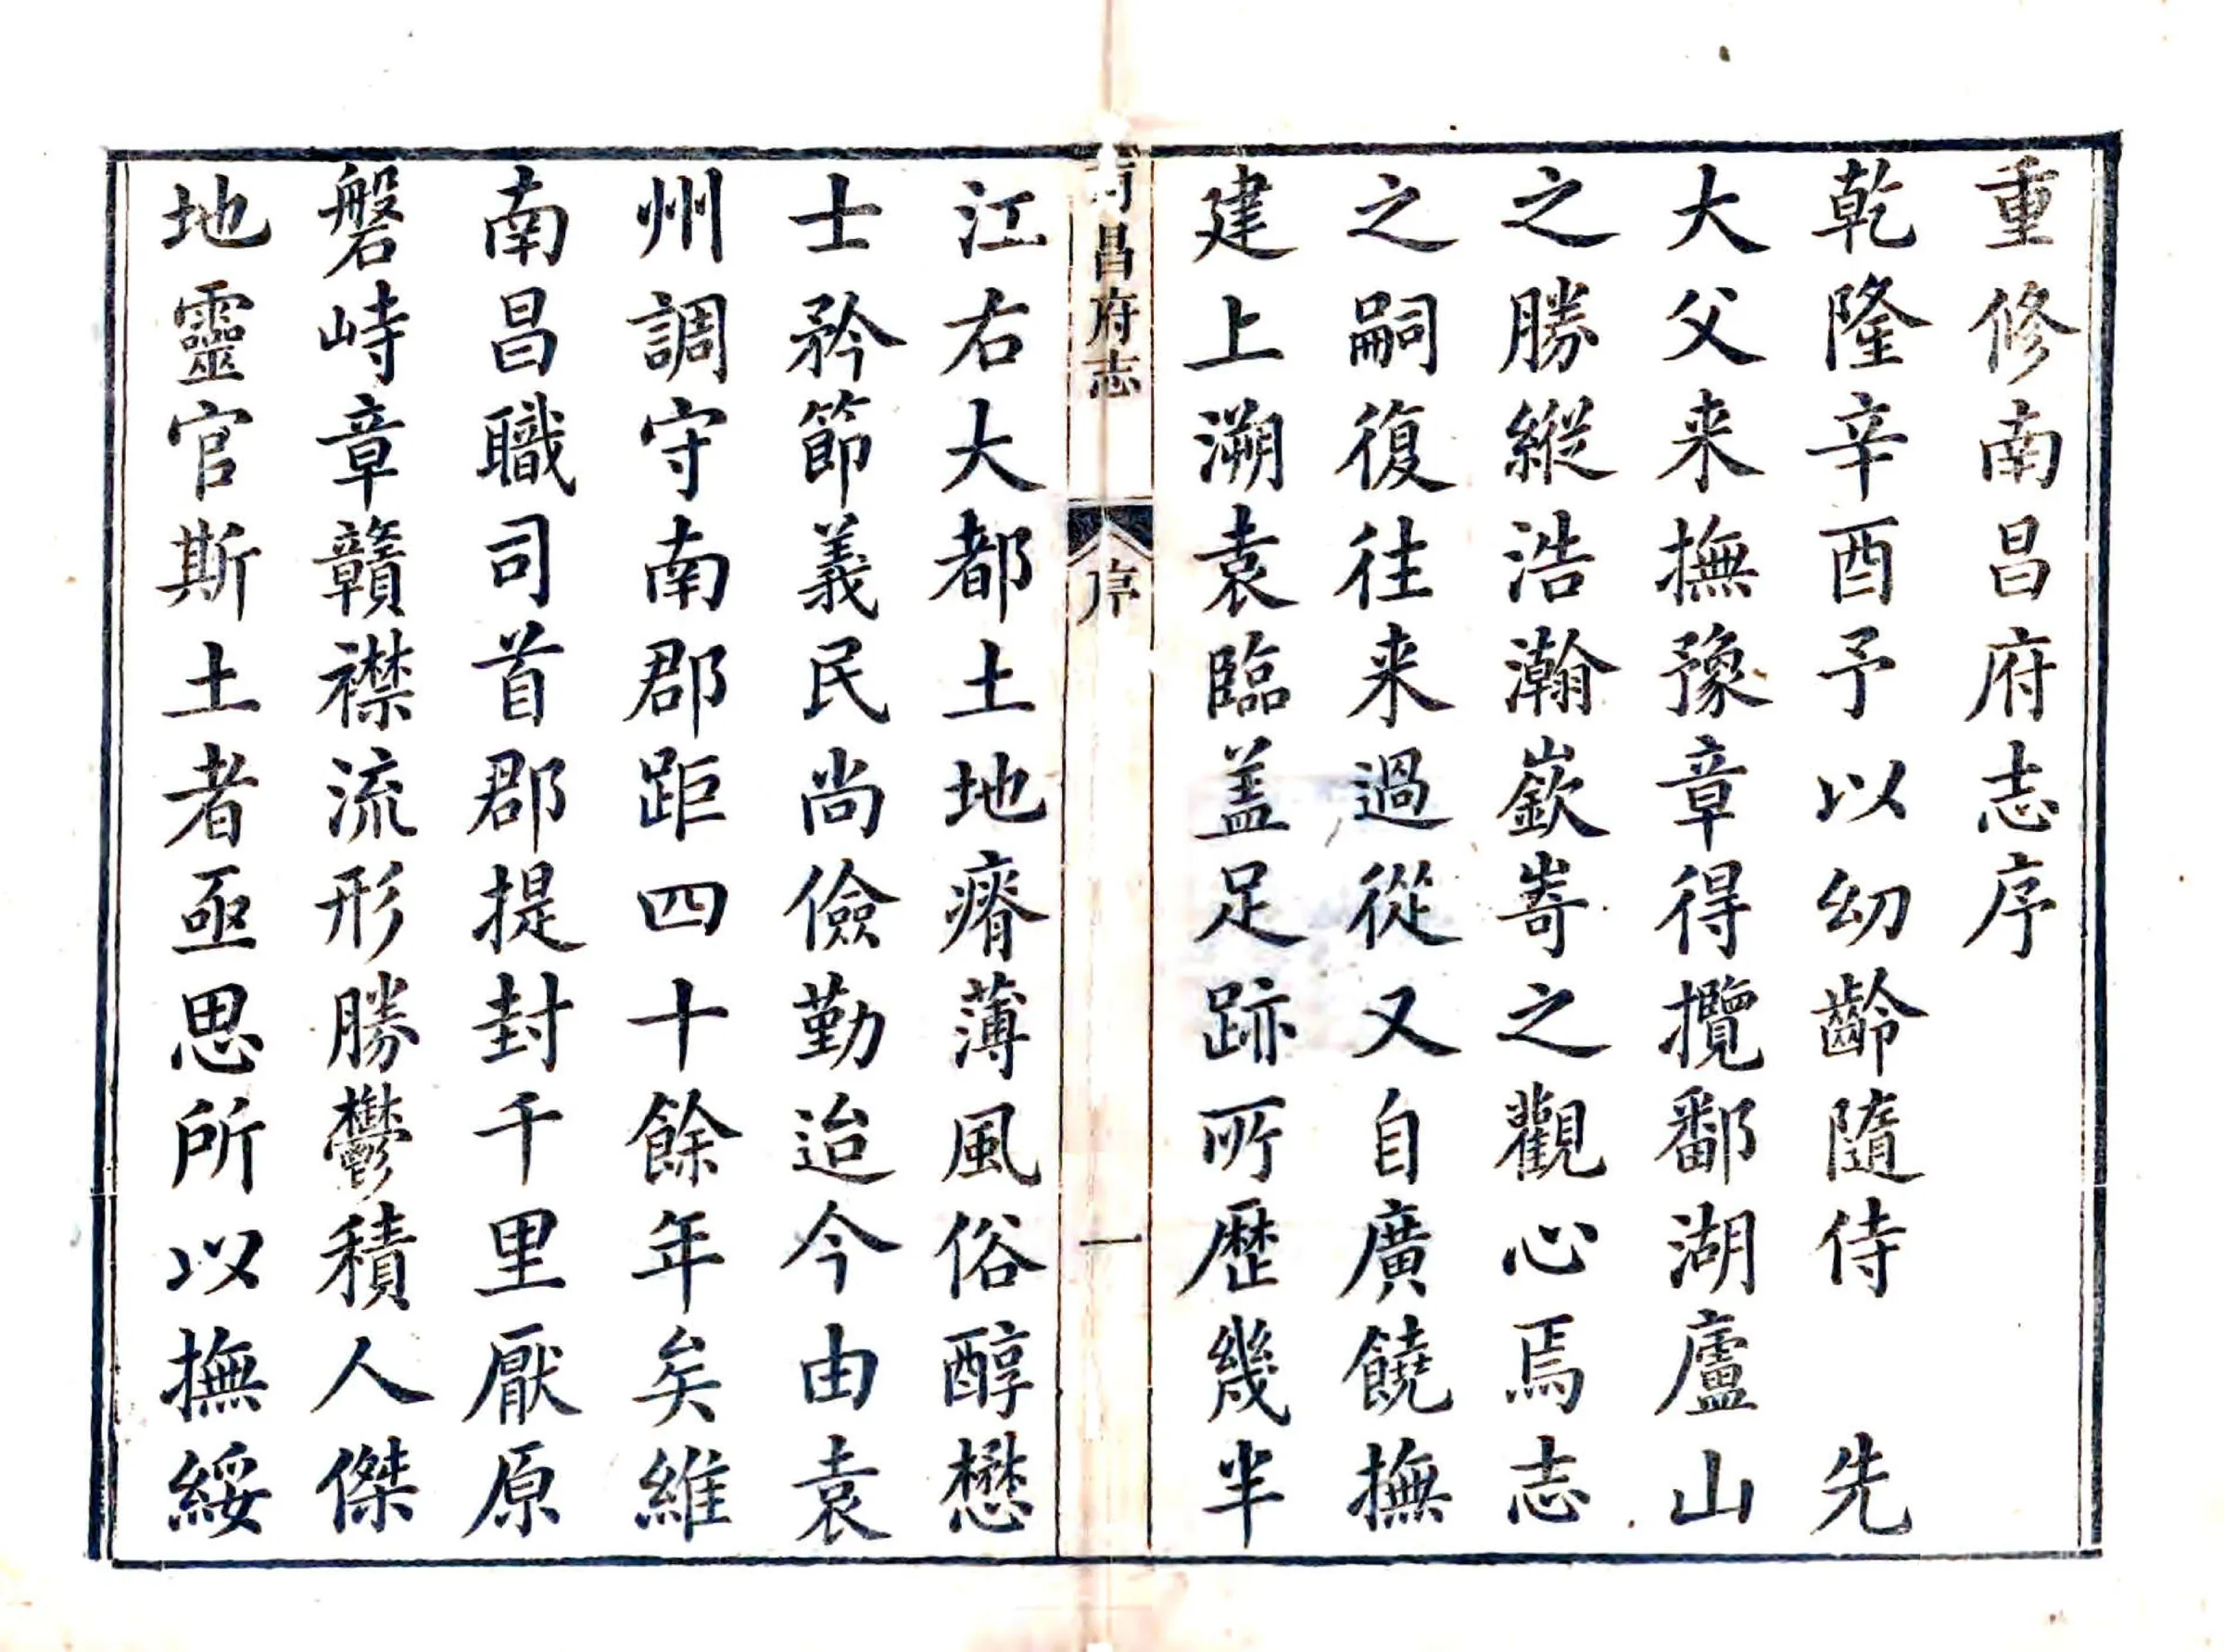 重修南昌府志序
乾隆辛酉予以幼齡隨侍　先
大父来撫豫章得攬鄱湖廬山
之勝縱浩瀚嶔㟢之觀心焉志
之嗣復往来過從又自廣饒撫
建上溯袁臨蓋足跡所歷幾半
南昌府志　序　一
江右大都土地瘠薄風俗醇懋
士矜節義民尚儉勤迨今由袁
州調守南郡距四十餘年矣維
南昌職司首郡提封千里厭原
磐峙章贛襟流形勝鬱積人傑
地靈官斯土者亟思所以撫綏